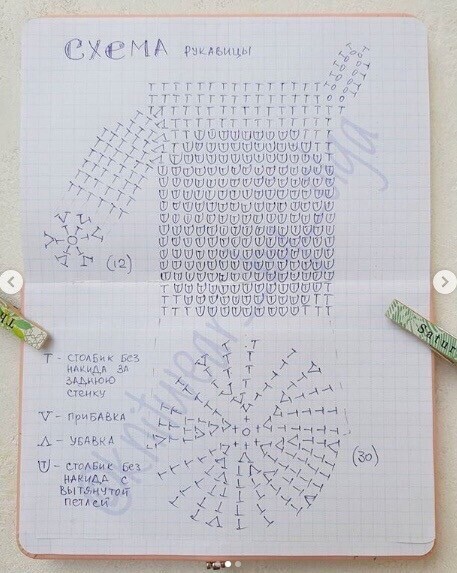 СХЕМА РУКАВИЦЫ
(12)
Т - СТОЛБИК БЕЗ
НАКИДА ЗА
ЗАДНЮЮ
СТЕНКУ
V - ПРИБАВКА
Λ - УБАВКА
(30)
U - СТОЛБИК БЕЗ
НАКИДА С
ВЫТЯНУТОЙ
ПЕТЛЕЙ
Satur